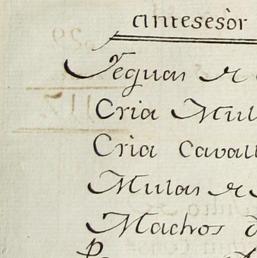 antesesòr
Yeguas de
Cria Mul
Cria Cavall
Mulas de
Machos d